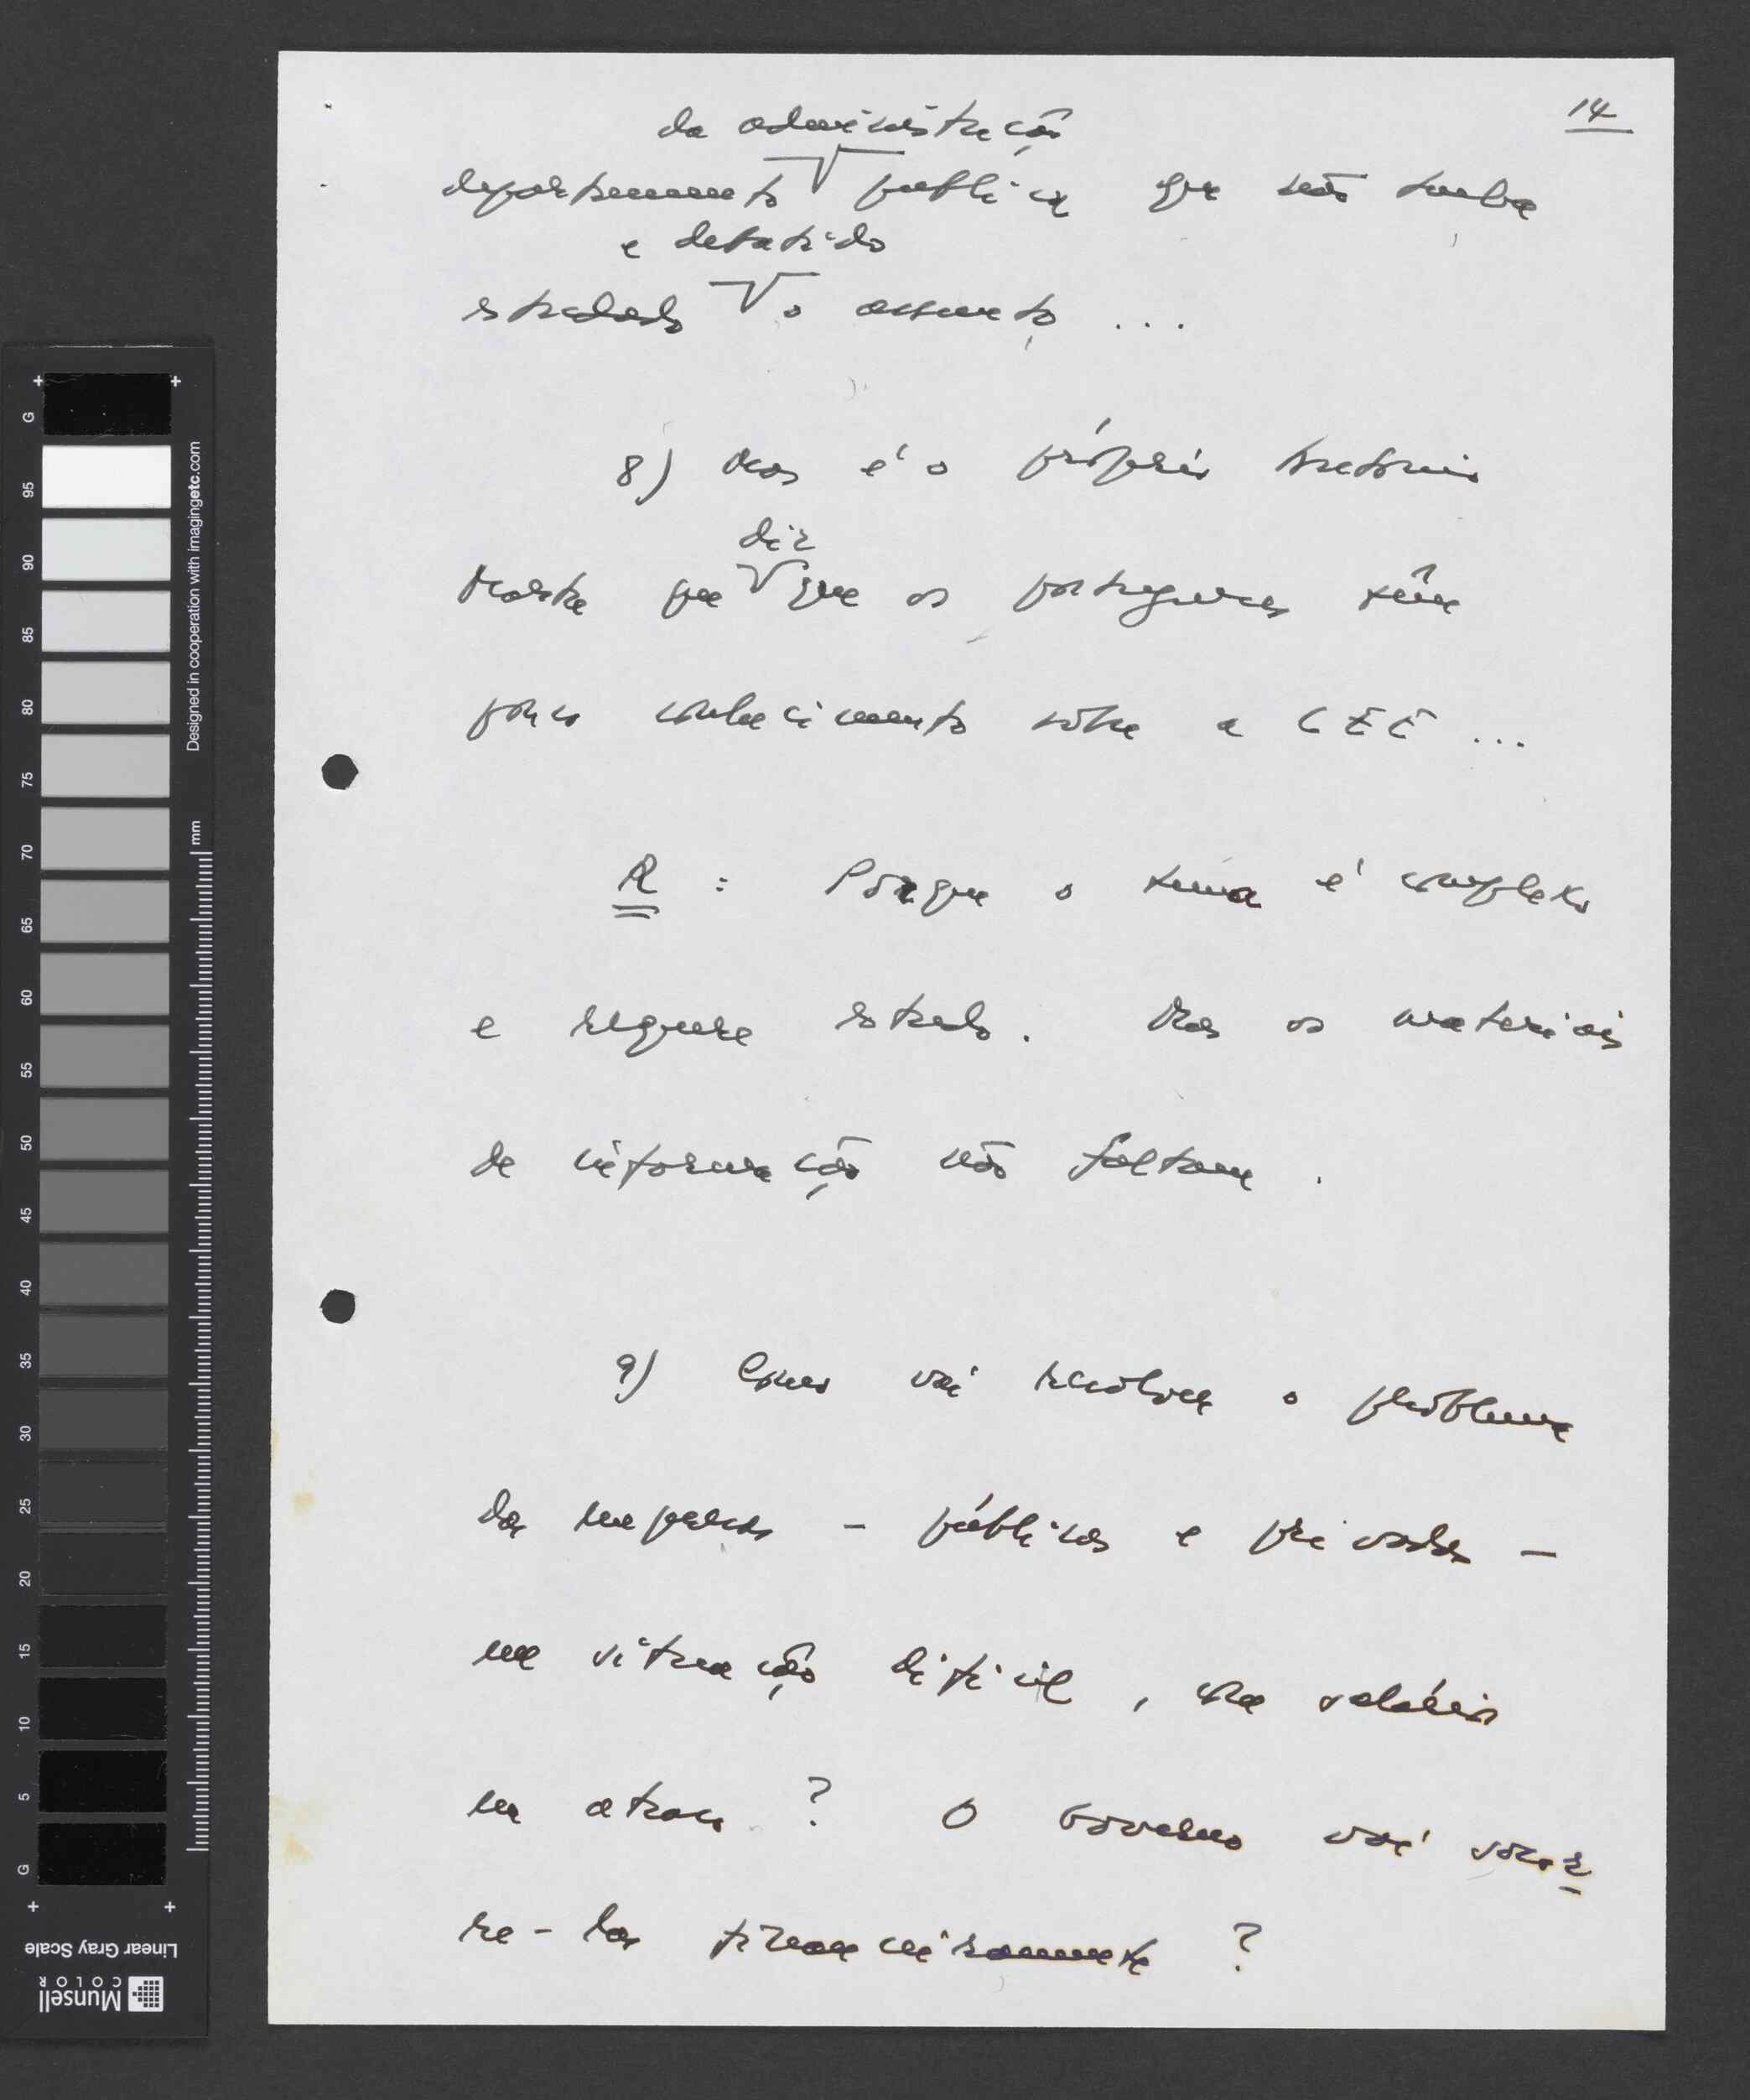 14
da administração
departamento pública que não tenha
e debatido
estudado o assunto ...
8) Mas é o próprio António
diz
Marta que que os portugueses têm
pouco conhecimento sobre a CEE ...
R : Porque o tema é complexo
e requere estudo. Mas os materiais
de informação não faltam.
9) Como vai resolver o problema
das empresas - públicas e privadas -
em situação difícil, com salários
em atraso ? O Governo vai socor
re-las financeiramente ?
G
95
90
85
80
75
70
65
60
55
50
45
40
35
30
25
20
15
10
5
G
mm
Designed in cooperation with imagingetc.com
Linear Gray Scale
Munsell
COLOR